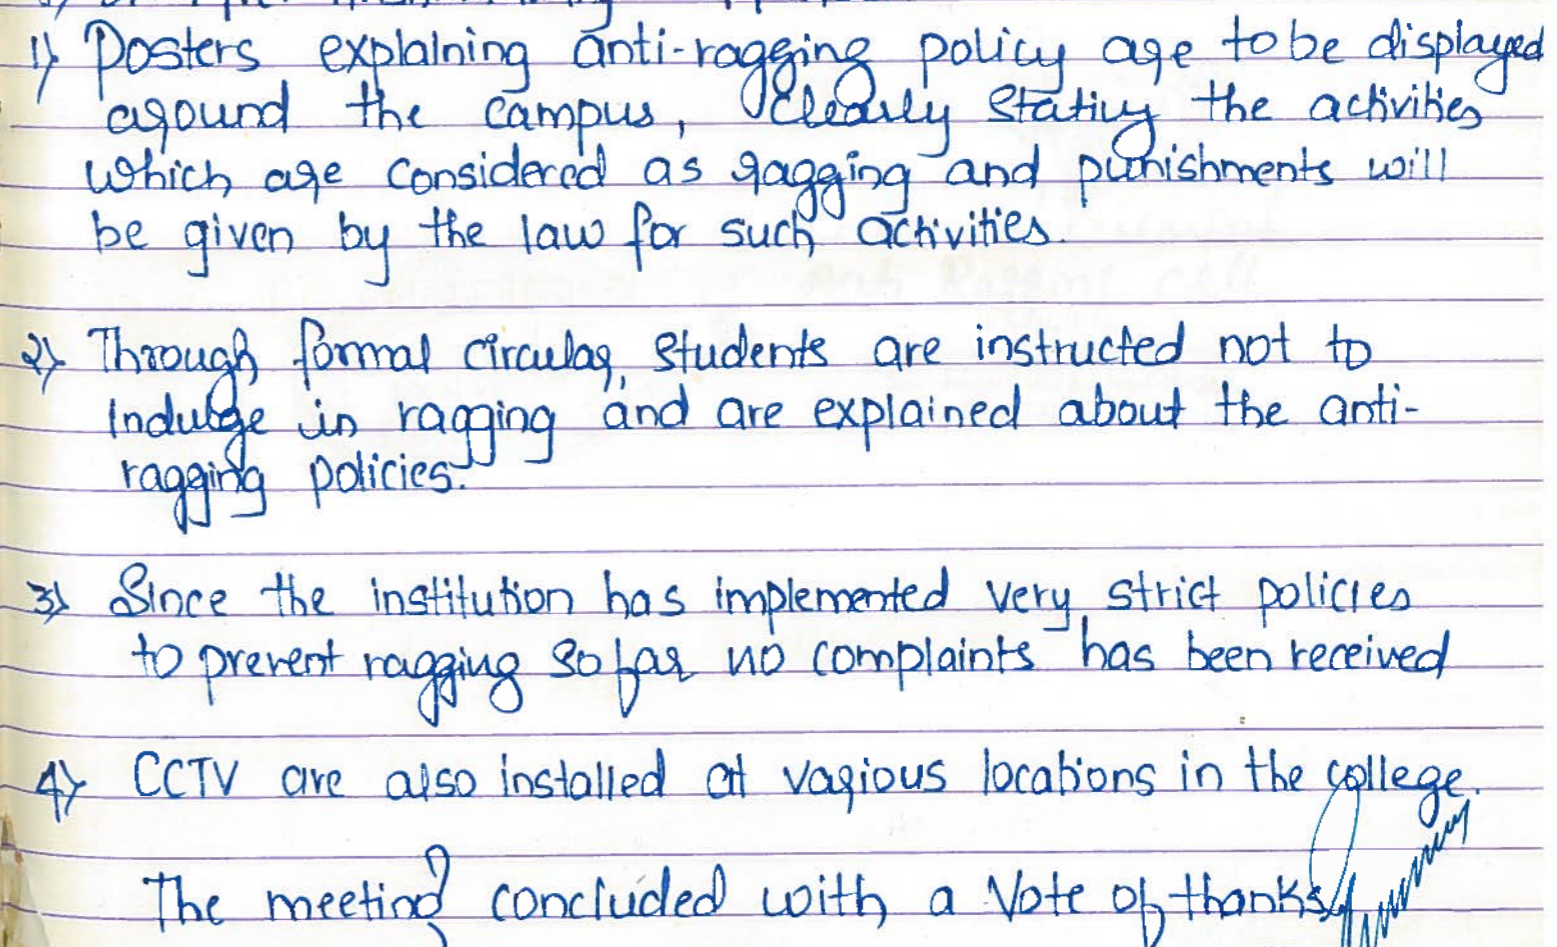 1) Posters explaining anti-ragging policy are to be displayed
around the campus, clearly stating the activities
which are considered as ragging and punishments will
be given by the law for such activities.
2) Through formal circular, students are instructed not to
indulge in ragging and are explained about the anti-
ragging policies.
3) Since the institution has implemented very strict policies
to prevent ragging so far no complaints has been received
4) CCTV are also installed at various locations in the college.
The meeting concluded with a Vote of thanks